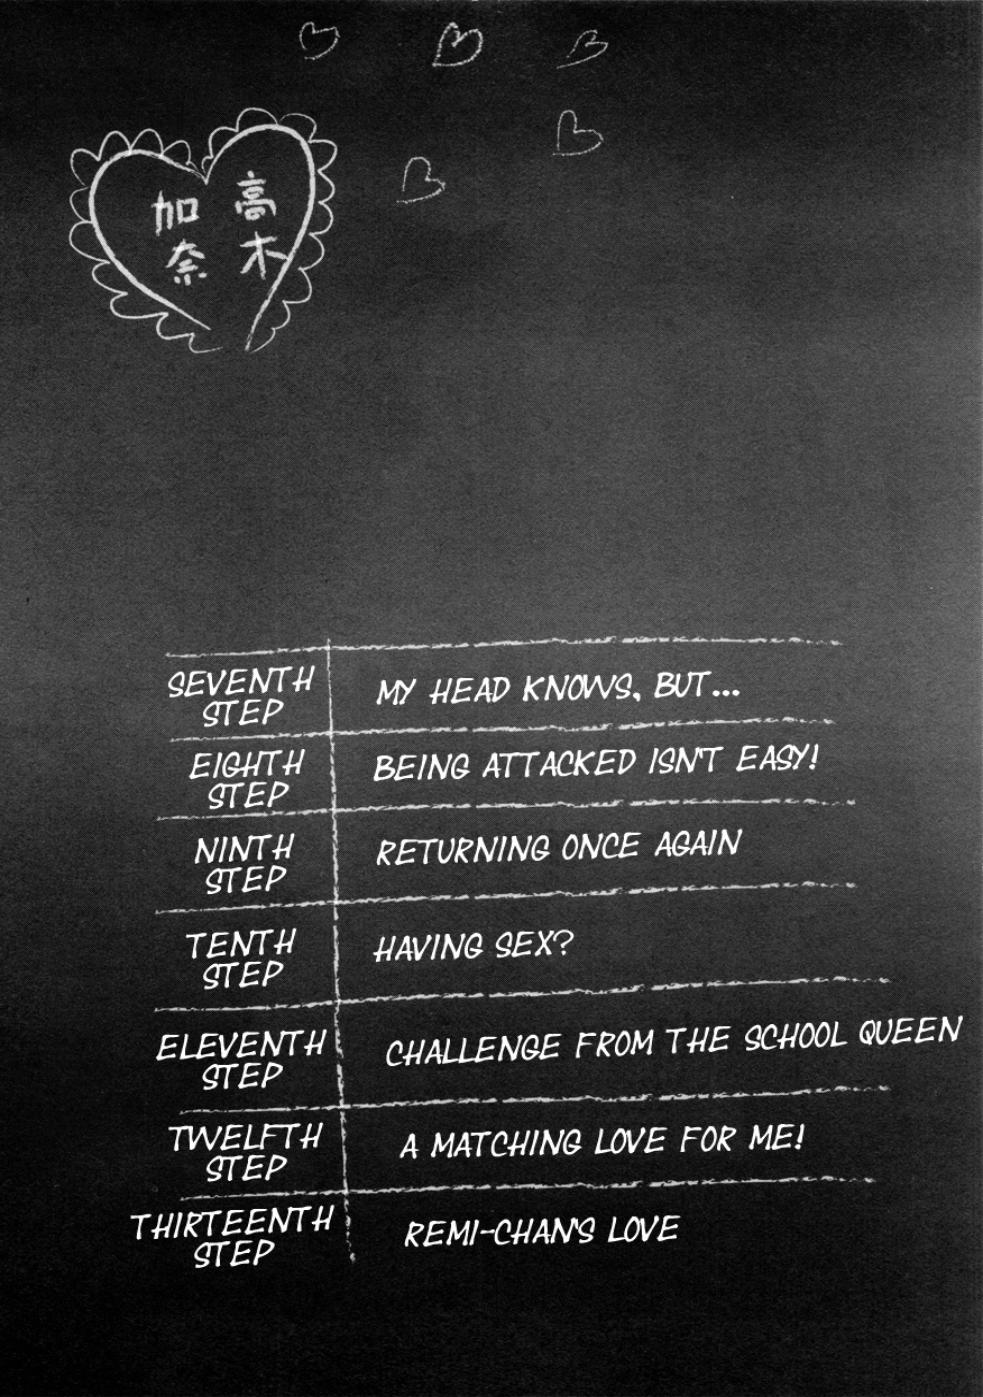 高木
加奈
SEVENTH STEP
MY HEAD KNOWS, BUT...
EIGHTH STEP
BEING ATTACKED ISN'T EASY!
NINTH STEP
RETURNING ONCE AGAIN
TENTH STEP
HAVING SEX?
ELEVENTH STEP
CHALLENGE FROM THE SCHOOL QUEEN
TWELFTH STEP
A MATCHING LOVE FOR ME!
THIRTEENTH STEP
REMI-CHAN'S LOVE